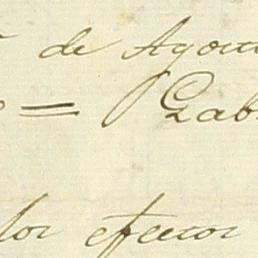 de Agos
= Gab
los efectos